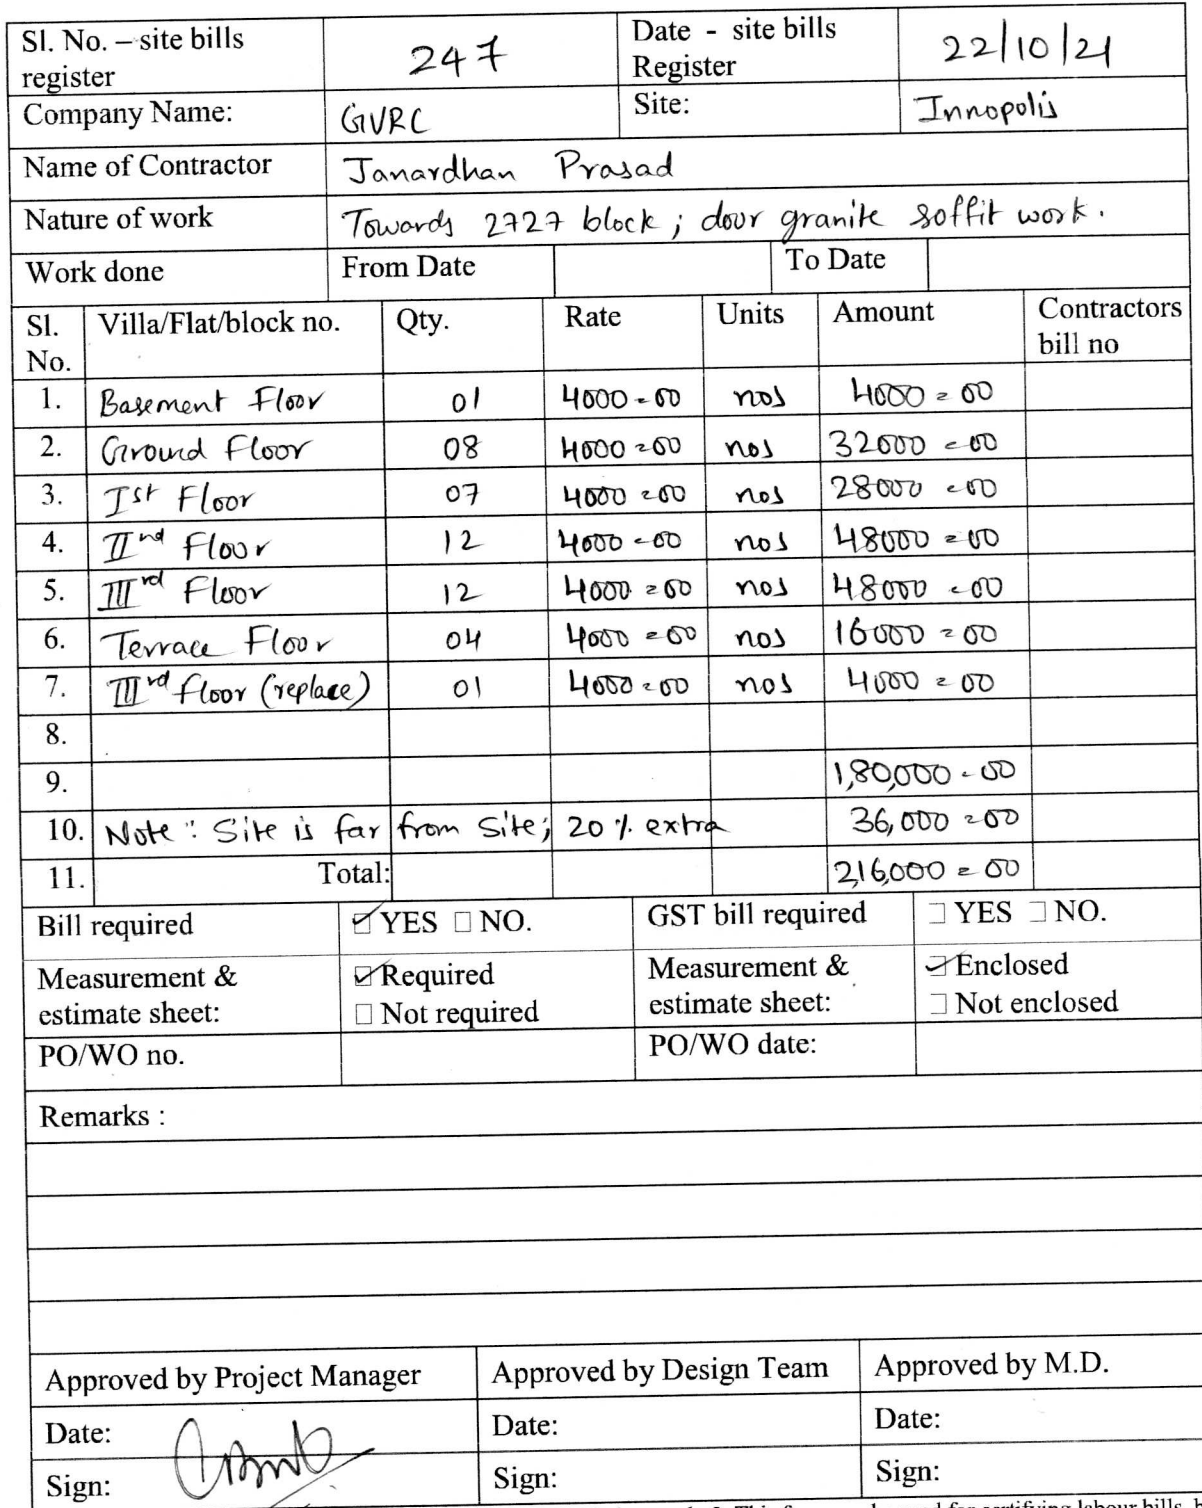 Sl. No. – site bills register 247 Date - site bills Register 22/10/21
Company Name: GVRC Site: Innopolis
Name of Contractor Janardhan Prasad
Nature of work Towards 2727 block; door granite soffit work.
Work done From Date To Date
Sl. No. Villa/Flat/block no. Qty. Rate Units Amount Contractors bill no
1. Basement Floor 01 4000=00 nos 4000=00
2. Ground Floor 08 4000=00 nos 32000=00
3. Ist Floor 07 4000=00 nos 28000=00
4. IInd Floor 12 4000=00 nos 48000=00
5. IIIrd Floor 12 4000=00 nos 48000=00
6. Terrace Floor 04 4000=00 nos 16000=00
7. IIIrd floor (replace) 01 4000=00 nos 4000=00
8.
9. 1,80,000=00
10. Note: Site is far from Site; 20% extra 36,000=00
11. Total: 2,16,000=00
Bill required ☑ YES ☐ NO. GST bill required ☐ YES ☐ NO.
Measurement & estimate sheet: ☑ Required ☐ Not required Measurement & estimate sheet: ☑ Enclosed ☐ Not enclosed
PO/WO no. PO/WO date:
Remarks :
Approved by Project Manager Approved by Design Team Approved by M.D.
Date: Date: Date:
Sign: Sign: Sign:
This form can be used for certifying labour bills.